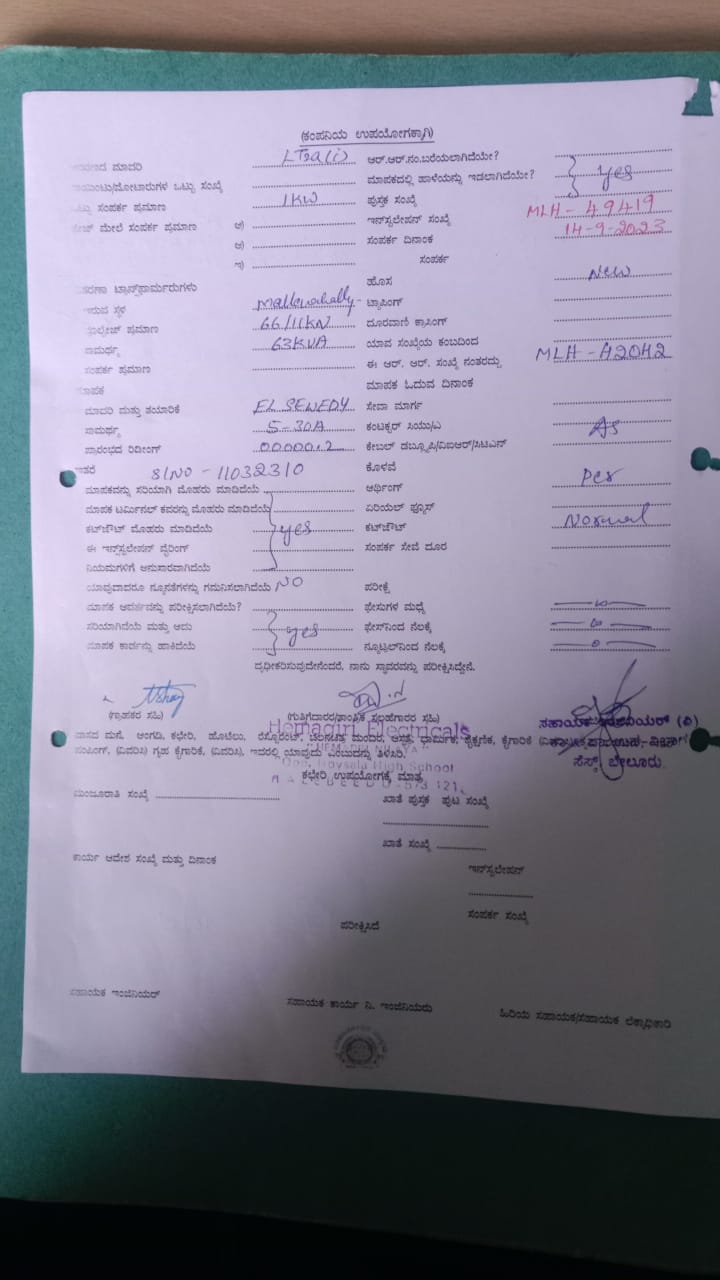 (ಕಂಪನಿಯ ಉಪಯೋಗಕ್ಕಾಗಿ)
ಮಾದರಿ LT2a(i) ಆರ್.ಆರ್.ನಂ.ಬರೆಯಲಾಗಿದೆಯೇ?
ಒಟ್ಟು ಸಂಖ್ಯೆ ಮಾಪಕದಲ್ಲಿ ಹಾಳೆಯನ್ನು ಇಡಲಾಗಿದೆಯೇ? yes
ಸಂಪರ್ಕ ಪ್ರಮಾಣ 1KW ಪುಸ್ತಕ ಸಂಖ್ಯೆ
ಮೇಲೆ ಸಂಪರ್ಕ ಪ್ರಮಾಣ ಅ) ಇನ್‌ಸ್ಟಲೇಷನ್ ಸಂಖ್ಯೆ MLH - 49419
ಆ) ಸಂಪರ್ಕ ದಿನಾಂಕ 14-9-2023
ಇ) ಸಂಪರ್ಕ
ಟ್ರಾನ್ಸ್‌ಫಾರ್ಮರುಗಳು ಹೊಸ New
ಇರುವ ಸ್ಥಳ ಟ್ಯಾಪಿಂಗ್
ಪ್ರಮಾಣ 66/11KV ದೂರವಾಣಿ ಕ್ರಾಸಿಂಗ್
ಸಾಮರ್ಥ್ಯ 63KVA ಯಾವ ಸಂಖ್ಯೆಯ ಕಂಬದಿಂದ
ಸಂಪರ್ಕ ಪ್ರಮಾಣ ಈ ಆರ್. ಆರ್. ಸಂಖ್ಯೆ ನಂತರದ್ದು MLH - 42042
ಮಾಪಕ ಮಾಪಕ ಓದುವ ದಿನಾಂಕ
ಮಾದರಿ ಮತ್ತು ತಯಾರಿಕೆ EL SEWEDY ಸೇವಾ ಮಾರ್ಗ
ಸಾಮರ್ಥ್ಯ 5-30A ಕಂಟಕ್ಟರ್ ಸಿಯು/ಎ As
ಪ್ರಾರಂಭದ ರಿಡೀಂಗ್ 00000.2 ಕೇಬಲ್ ಡಬ್ಲ್ಯೂಪಿ/ವಿಐಆರ್/ಸಿಟಿಎಸ್
ಇತರೆ Sl No - 11032310 ಕೊಳವೆ
ಮಾಪಕವನ್ನು ಸರಿಯಾಗಿ ಮೊಹರು ಮಾಡಿದೆಯೆ ಆರ್ಥಿಂಗ್ per
ಮಾಪಕ ಟರ್ಮಿನಲ್ ಕವರನ್ನು ಮೊಹರು ಮಾಡಿದೆಯೆ ಏರಿಯಲ್ ಫ್ಯೂಸ್
ಕಟ್‌ಔಟ್ ಮೊಹರು ಮಾಡಿದೆಯೆ yes ಕಟ್‌ಔಟ್ Normal
ಈ ಇನ್ಸ್‌ಸ್ಟಲೇಷನ್ ವೈರಿಂಗ್ ಸಂಪರ್ಕ ಸೇವೆ ದೂರ
ನಿಯಮಗಳಿಗೆ ಅನುಸಾರವಾಗಿದೆಯೆ
ಯಾವುದಾದರೂ ನ್ಯೂನತೆಗಳನ್ನು ಗಮನಿಸಲಾಗಿದೆಯೆ NO ಪರೀಕ್ಷೆ
ಮಾಪಕ ಆವರ್ತವನ್ನು ಪರೀಕ್ಷಿಸಲಾಗಿದೆಯೆ? ಫೇಸುಗಳ ಮಧ್ಯೆ
ಸರಿಯಾಗಿದೆಯೆ ಮತ್ತು ಅದು yes ಫೇಸ್‌ನಿಂದ ನೆಲಕ್ಕೆ
ಮಾಪಕ ಕಾರ್ಡನ್ನು ಹಾಕಿದೆಯೆ ನ್ಯೂಟ್ರಲ್‌ನಿಂದ ನೆಲಕ್ಕೆ
ದೃಢೀಕರಿಸುವುದೇನೆಂದರೆ, ನಾನು ಸ್ಥಾವರವನ್ನು ಪರೀಕ್ಷಿಸಿದ್ದೇನೆ.
(ಗ್ರಾಹಕರ ಸಹಿ) (ಗುತ್ತಿಗೆದಾರರ/ತಾಂತ್ರಿಕ ಸಲಹೆಗಾರರ ಸಹಿ)
Hemagiri Electricals
ವಾಸದ ಮನೆ, ಅಂಗಡಿ, ಕಛೇರಿ, ಹೊಟೆಲು, ರೆಸ್ಟೋರೆಂಟ್, ಚಲನಚಿತ್ರ ಮಂದಿರ, ಆಸ್ಪತ್ರೆ, ಧಾರ್ಮಿಕ, ಶೈಕ್ಷಣಿಕ, ಕೈಗಾರಿಕೆ
ಪಂಪಿಂಗ್, (ವಿವರಿಸಿ) ಗೃಹ ಕೈಗಾರಿಕೆ, (ವಿವರಿಸಿ), ಇದರಲ್ಲಿ ಯಾವುದು ಎಂಬುದನ್ನು ತಿಳಿಸಿರಿ. ಸೆಸ್ಕ್, ಬೇಲೂರು.
Opp. Hoysala High School
ಕಛೇರಿ ಉಪಯೋಗಕ್ಕೆ ಮಾತ್ರ
ಮಂಜೂರಾತಿ ಸಂಖ್ಯೆ ಖಾತೆ ಪುಸ್ತಕ ಪುಟ ಸಂಖ್ಯೆ
ಖಾತೆ ಸಂಖ್ಯೆ
ಕಾರ್ಯ ಆದೇಶ ಸಂಖ್ಯೆ ಮತ್ತು ದಿನಾಂಕ ಇನ್‌ಸ್ಟಲೇಷನ್
ಸಂಪರ್ಕ ಸಂಖ್ಯೆ
ಪರೀಕ್ಷಿಸಿದೆ
ಸಹಾಯಕ ಇಂಜಿನಿಯರ್ ಸಹಾಯಕ ಕಾರ್ಯ ನಿ. ಇಂಜಿನಿಯರು ಹಿರಿಯ ಸಹಾಯಕ/ಸಹಾಯಕ ಲೆಕ್ಕಾಧಿಕಾರಿ